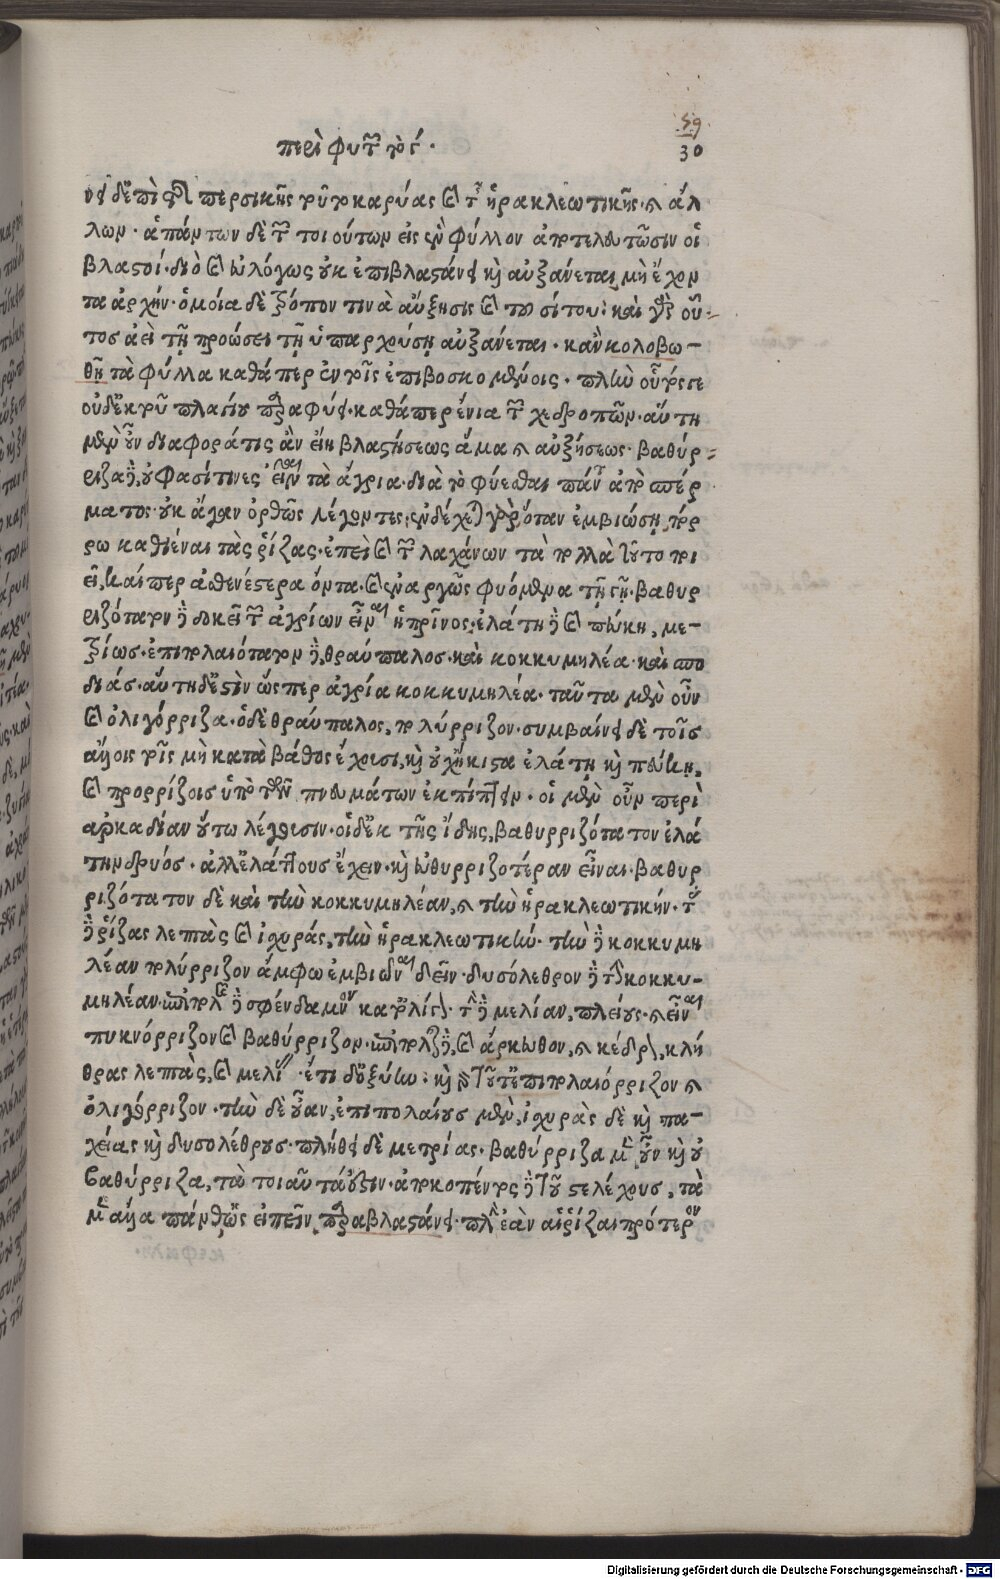 περὶ φυτῶν τὸ γ΄.
59
30
νει δὲ ἐπὶ τῆς περσικῆς τοῦτο καρύας καὶ τῆς ἡρακλεωτικῆς. καὶ ἄλ
λων. ἁπάντων δὲ τῶν τοιούτων εἰς ἓν φύλλον ἀποτελευτῶσιν οἱ
βλαστοί. διὸ καὶ εὐλόγως οὐκ ἐπιβλαστάνει καὶ αὐξάνεται, μὴ ἔχον
τα ἀρχήν. ὁμοία δὲ τρόπον τινὰ ἀύξησις καὶ του σίτου. καὶ γὰρ οὗ-
τος ἀεὶ τῇ προώσει τῇ ὑπαρχούσῃ αὐξάνεται. κἂν κολοβω-
θῇ τὰ φύλλα καθάπερ ἐν τοῖς ἐπιβοσκομένοις. πλὴν οὗτός γε
οὐδὲ ἐκ τοῦ πλαγίου παραφύει. καθάπερ ἔνια τῶν χεδροπῶν. αὕτη
μὲν οὖν διαφορά τις ἂν εἴη βλαστήσεως ἅμα καὶ αὐξήσεως. βαθύρ-
ριζα δὲ, οὔ φασί τινες εἶναι τὰ ἄγρια. διὰ τὸ φύεσθαι πάντα ἀπὸ σπέρ
ματος. οὐκ ἄγαν ὀρθῶς λέγοντες, ἐνδέχεται γὰρ ὅταν ἐμβιώσῃ πόρ
ρω καθιέναι τὰς ῥίζας. ἐπεὶ καὶ τῶν λαχάνων τὰ πολλὰ τοῦτο ποι
εῖ, καίπερ ἀσθενέστερα ὄντα. καὶ ἐναργῶς φυόμενα τῇ γῇ. βαθυρ
ριζότατον δὲ δοκεῖ τῶν ἀγρίων εἶναι ἡ πρῖνος. ἐλάτη δὲ καὶ πεύκη, με-
τρίως. ἐπιπολαιότατον δὲ, θραύπαλος. καὶ κοκκυμηλέα. καὶ σπο
διάς. αὕτη δέ ἐστὶν ὥσπερ ἀγρία κοκκυμηλέα. ταῦτα μὲν οὖν
καὶ ὀλιγόρριζα. ὁ δὲ θραύπαλος, πολύρριζον. συμβαίνει δὲ τοῖς
ἄλλοις τοῖς μὴ κατὰ βάθος ἔχουσι, καὶ οὐχ ἥκιστα ἐλάτῃ καὶ πεύκῃ,
καὶ προρρίζοις ὑπὸ τῶν πνευμάτων ἐκπίπτειν. οἱ μὲν οὖν περὶ
ἀρκαδίαν οὕτω λέγουσιν. οἱ δὲ ἐκ τῆς ἴδης, βαθυρριζότατον ἐλά
την δρυός. ἀλλ' ἐλάττους ἔχειν. καὶ εὐθυρριζοτέραν εἶναι. βαθυρ
ριζότατον δὲ καὶ τὴν κοκκυμηλέαν, καὶ τὴν ἡρακλεωτικήν. τὰς
δὲ ῥίζας λεπτὰς καὶ ἰσχυράς, τὴν ἡρακλεωτικήν. τὴν δὲ κοκκυμη
λέαν πολύρριζον ἄμφω ἐμβιῶναι δεῖν. δυσόλεθρον δὲ τὴν κοκκυ-
μηλέαν. ἐπιπολῆς δὲ σφένδαμνον καὶ ὀλίγας. τὴν δὲ μελίαν, πλείους. καὶ εἶναι
πυκνόρριζον καὶ βαθύρριζον. ἐπιπολῆς δὲ, καὶ ἄρκευθον, καὶ κέδρον, κλή
θρας λεπτὰς, καὶ μελί. ἔτι δ' ὀξύην. καὶ γὰρ τοῦτ' ἐπιπολαιόρριζον καὶ
ὀλιγόρριζον. τὴν δὲ οὖαν, ἐπιπολαίους μὲν, ἰσχυρὰς δὲ καὶ πα-
χείας καὶ δυσολέθρους. πλήθει δὲ μετρίας. βαθύρριζα μὲν οὖν καὶ οὐ
βαθύρριζα, τὰ τοιαῦτά ἐστιν. ἀποκοπέντος δὲ τοῦ στελέχους, τὰ
μὲν ἄλλα πάνθ' ὡς εἰπεῖν παραβλαστάνει. πλὴν ἐὰν αἱ ῥίζαι πρότερον